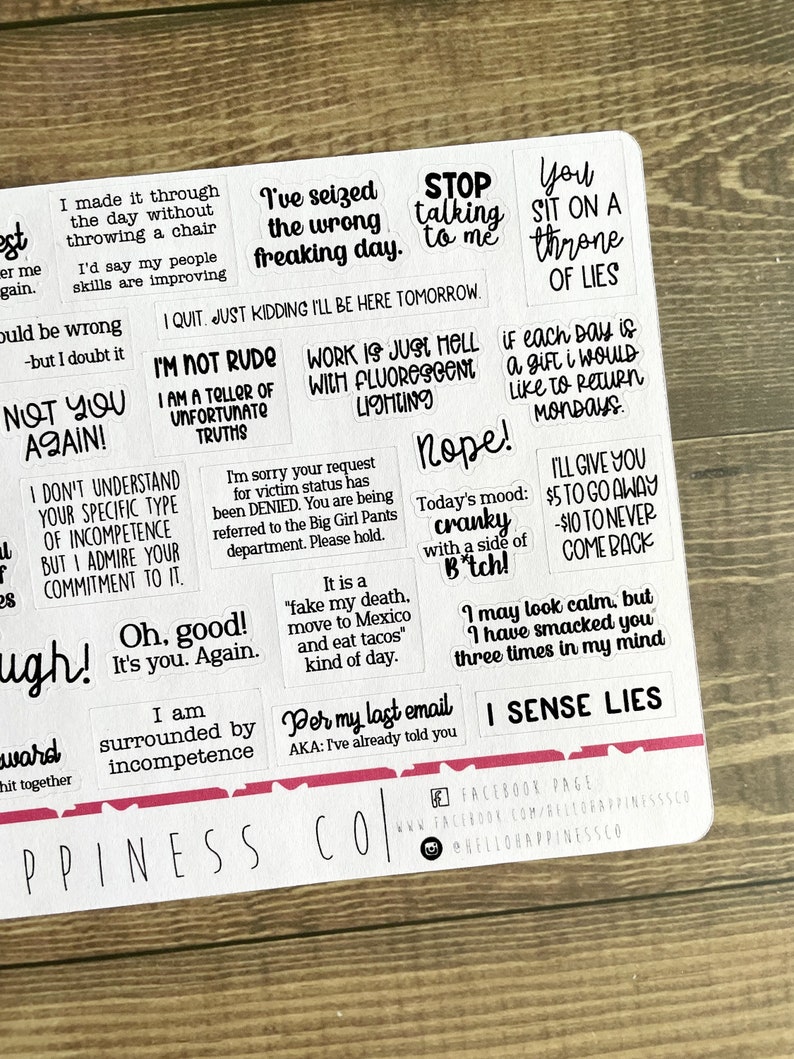 er me
gain.
I made it through
the day without
throwing a chair
I'd say my people
skills are improving
I've seized
the wrong
freaking day.
STOP
talking
to me
You
SIT ON A
throne
OF LIES
ould be wrong
-but I doubt it
I QUIT. JUST KIDDING I'LL BE HERE TOMORROW.
NOT YOU
AGAIN!
I'M NOT RUDE
I AM A TELLER OF
UNFORTUNATE
TRUTHS
WORK IS JUST HELL
WITH FLUORESCENT
LIGHTING
if EACH DAY iS
A Gift i WOULD
LiKE TO RETURN
MONDAYS.
Nope!
I DON'T UNDERSTAND
YOUR SPECIFIC TYPE
OF INCOMPETENCE
BUT I ADMIRE YOUR
COMMITMENT TO IT.
I'm sorry your request
for victim status has
been DENIED. You are being
referred to the Big Girl Pants
department. Please hold.
Today's mood:
cranky
with a side of
B*tch!
I'LL GIVE YOU
$5 TO GO AWAY
-$10 TO NEVER
COME BACK
es
ugh!
Oh, good!
It's you. Again.
It is a
"fake my death,
move to Mexico
and eat tacos"
kind of day.
I may look calm, but
I have smacked you
three times in my mind
ward
hit together
I am
surrounded by
incompetence
Per my last email
AKA: I've already told you
I SENSE LIES
PPINESS CO
FACEBOOK PAGE
WWW.FACEBOOK.COM/HELLOHAPPINESSSCO
@HELLOHAPPINESSCO